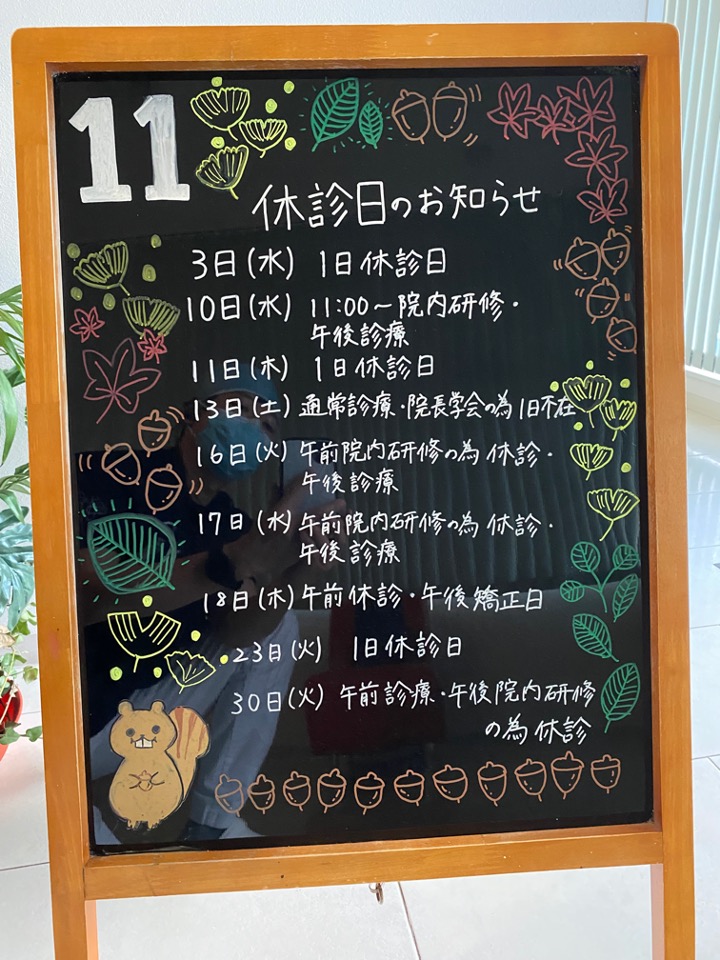 11
休診日のお知らせ
3日(水) 1日休診日
10日(水) 11:00〜院内研修・
午後診療
11日(木) 1日休診日
13日(土) 通常診療・院長学会の為1日不在
16日(火) 午前院内研修の為休診・
午後診療
17日(水) 午前院内研修の為休診・
午後診療
18日(木) 午前休診・午後矯正日
23日(火) 1日休診日
30日(火) 午前診療・午後院内研修
の為休診